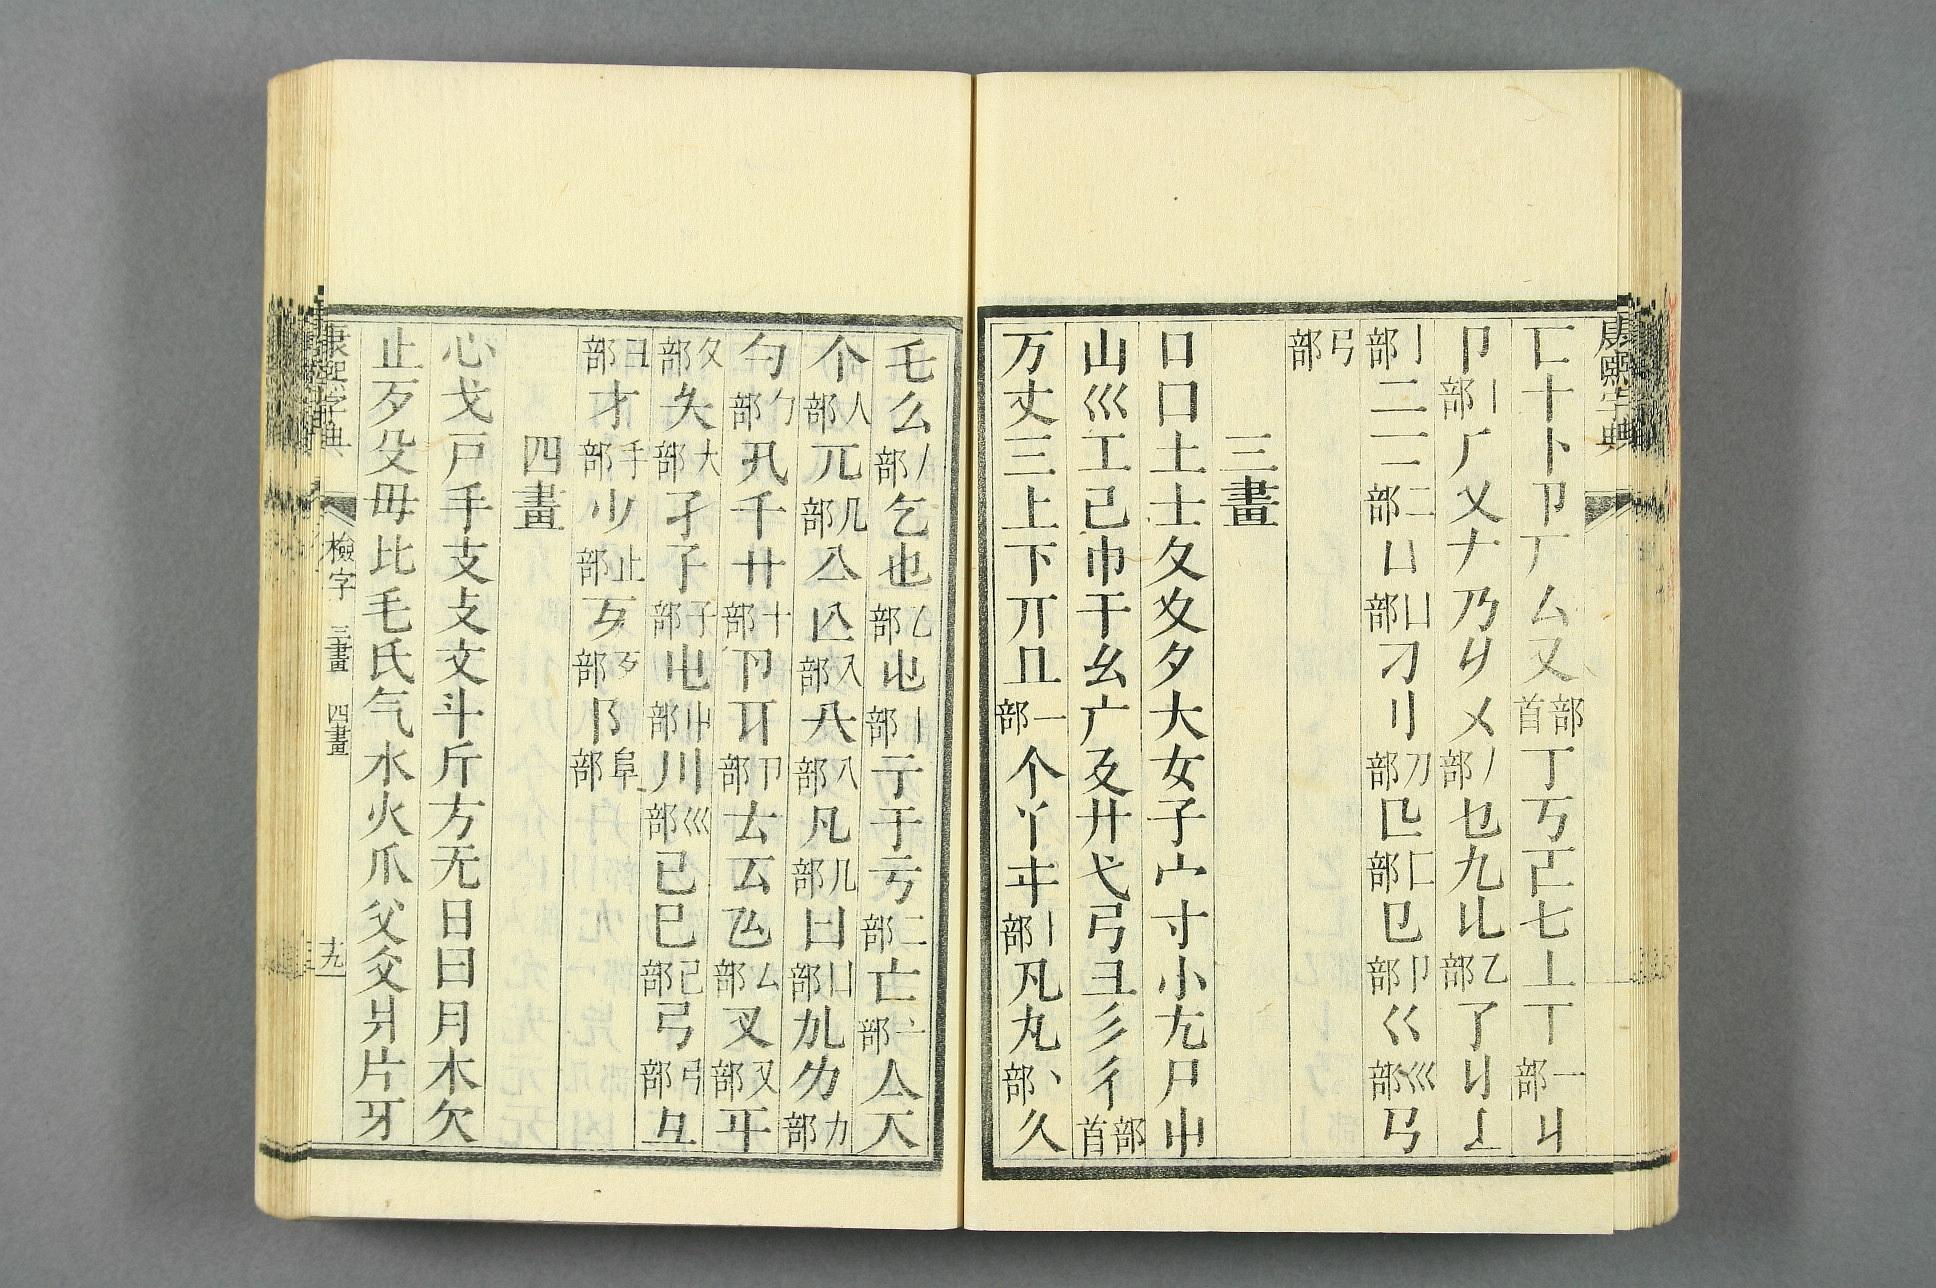 康熙字典
匸十卜卩厂厶又部首丁丂𠀇七丄丅一部丩
卩丨部𠂆乂𠂇乃㐅丿部乜九乚乙部了亅
亅部二亠二部凵凵部刁刂刀部匹匚部㔾卩部巜巛部㔿
弓部
三畫
口囗土士夂夊夕大女子宀寸小尢尸屮
山巛工己巾干幺广廴廾弋弓彐彡彳部首
万丈三上下丌丩一部个丫丰丨部凡丸丶部久
乇么丿部乞也乙部屯亅部亍于亏二部亡亠部亼亾
个人部兀几部亼亾入部八八部凡几部凵部劜力部
勺勹部孔千廾十部卪卩部厶厺厶部叉又部㔿
夂部夨大部孑孒子部屮屮部川巛部已巳己部弓弓部彑
彐部才手部少止部歹歹部阝阜部
四畫
心戈戶手支攴文斗斤方无日曰月木欠
止歹殳毋比毛氏气水火爪父爻爿片牙
康熙字典
檢字
三畫 四畫
十九